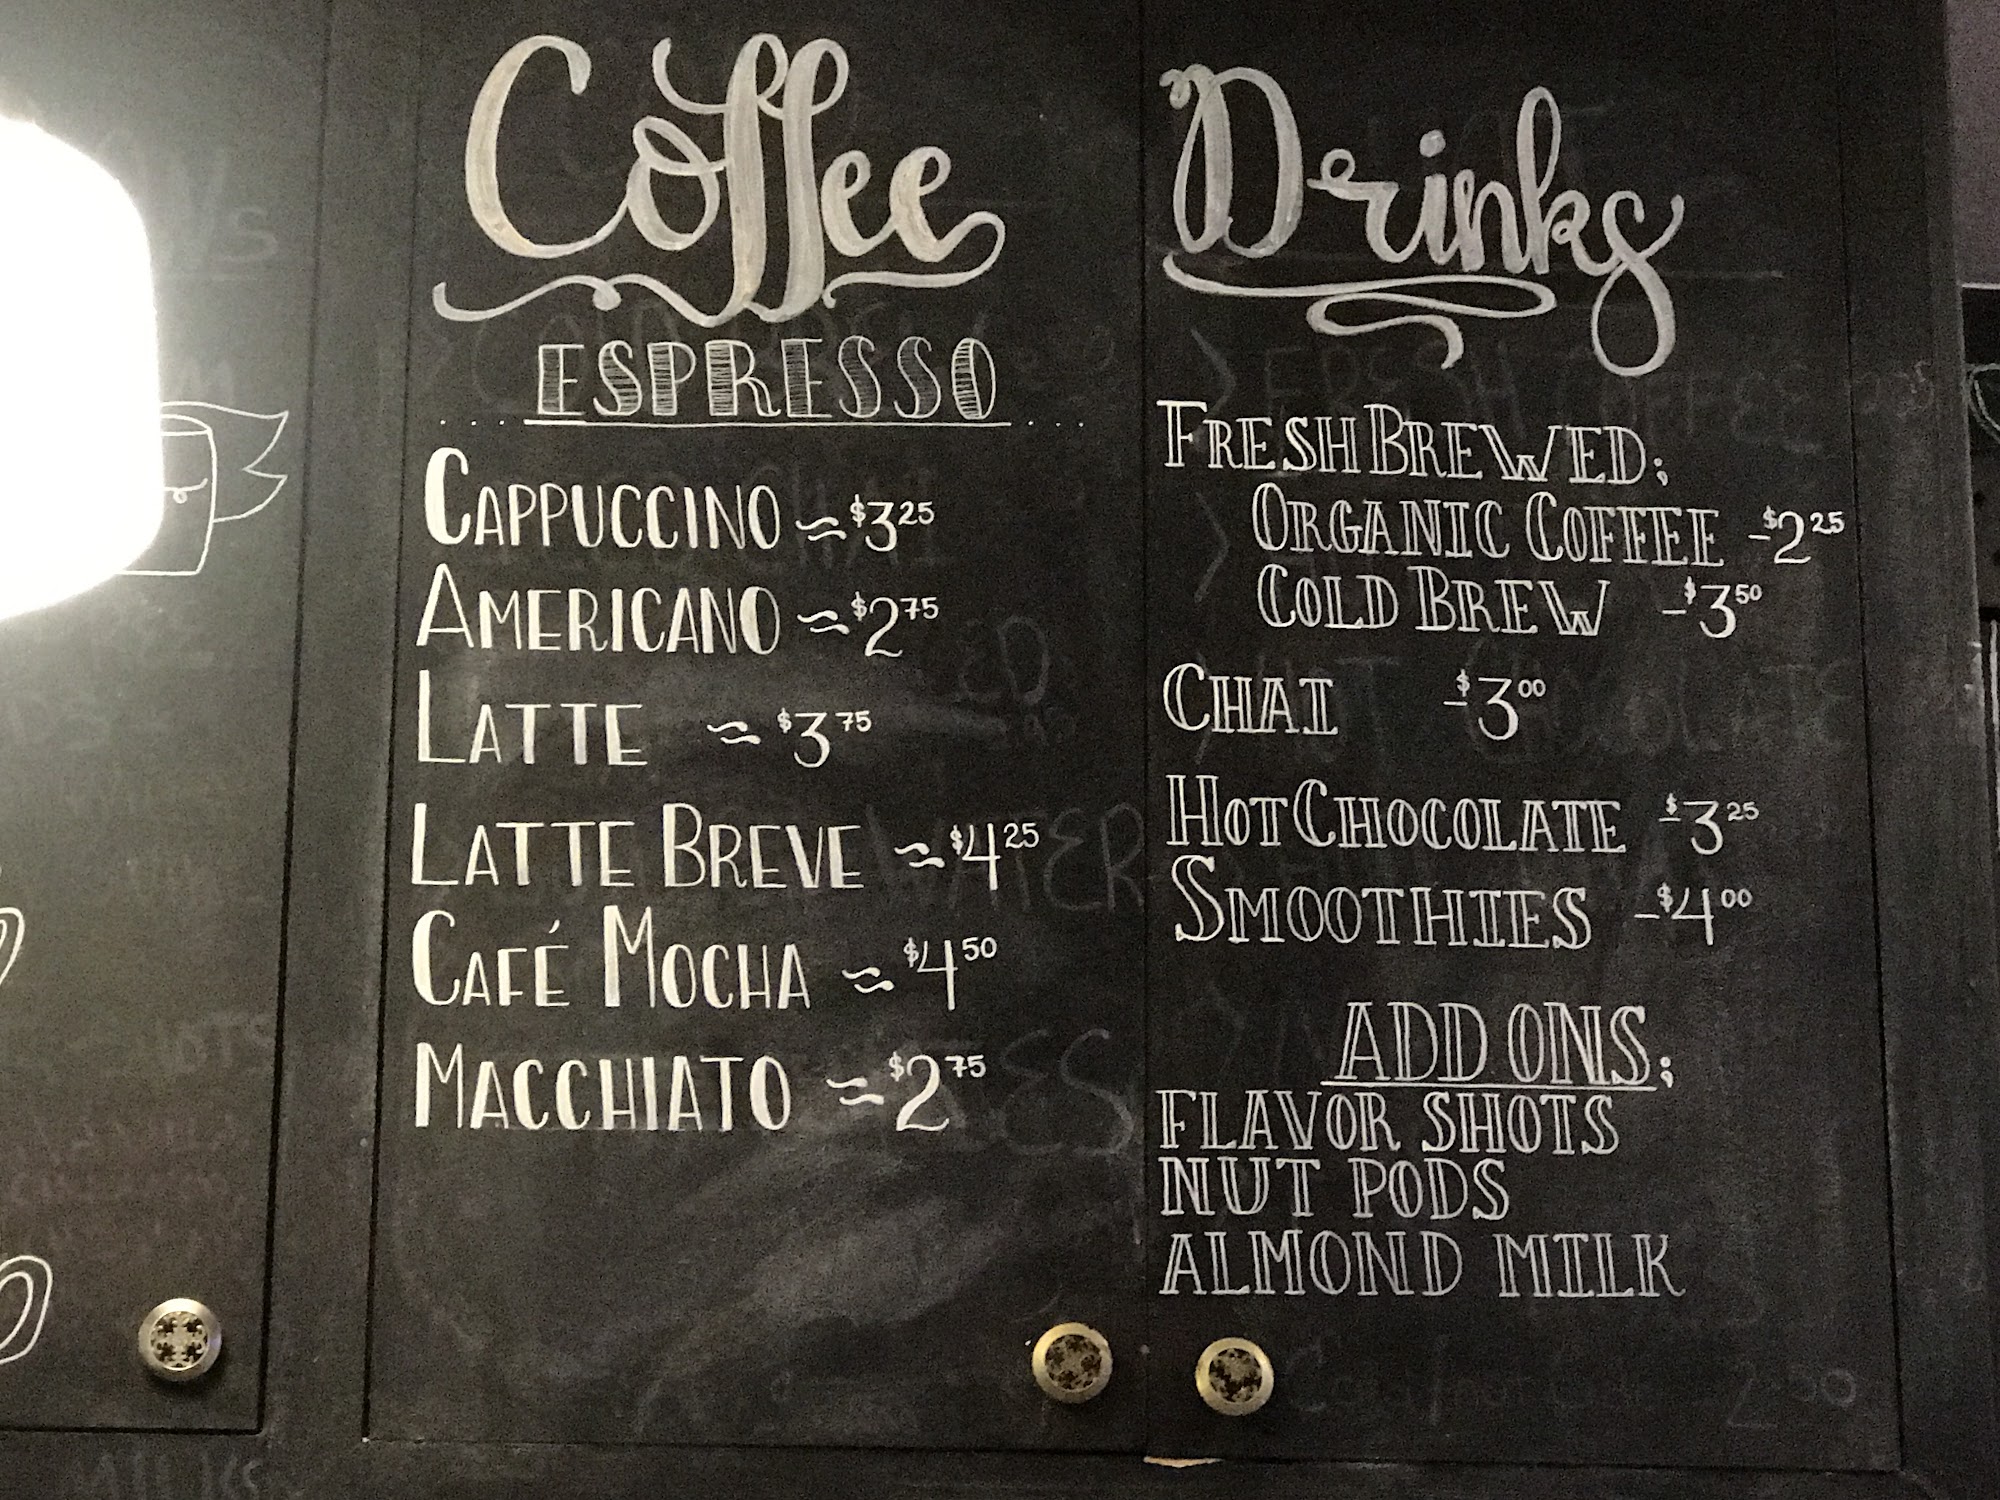 Coffee
ESPRESSO
CAPPUCCINO ~ $3.25
AMERICANO ~ $2.75
LATTE ~ $3.75
LATTE BREVE ~ $4.25
CAFÉ MOCHA ~ $4.50
MACCHIATO ~ $2.75
Drinks
FRESH BREWED;
ORGANIC COFFEE - $2.25
COLD BREW - $3.50
CHAI - $3.00
HOT CHOCOLATE - $3.25
SMOOTHIES - $4.00
ADD ONS;
FLAVOR SHOTS
NUT PODS
ALMOND MILK